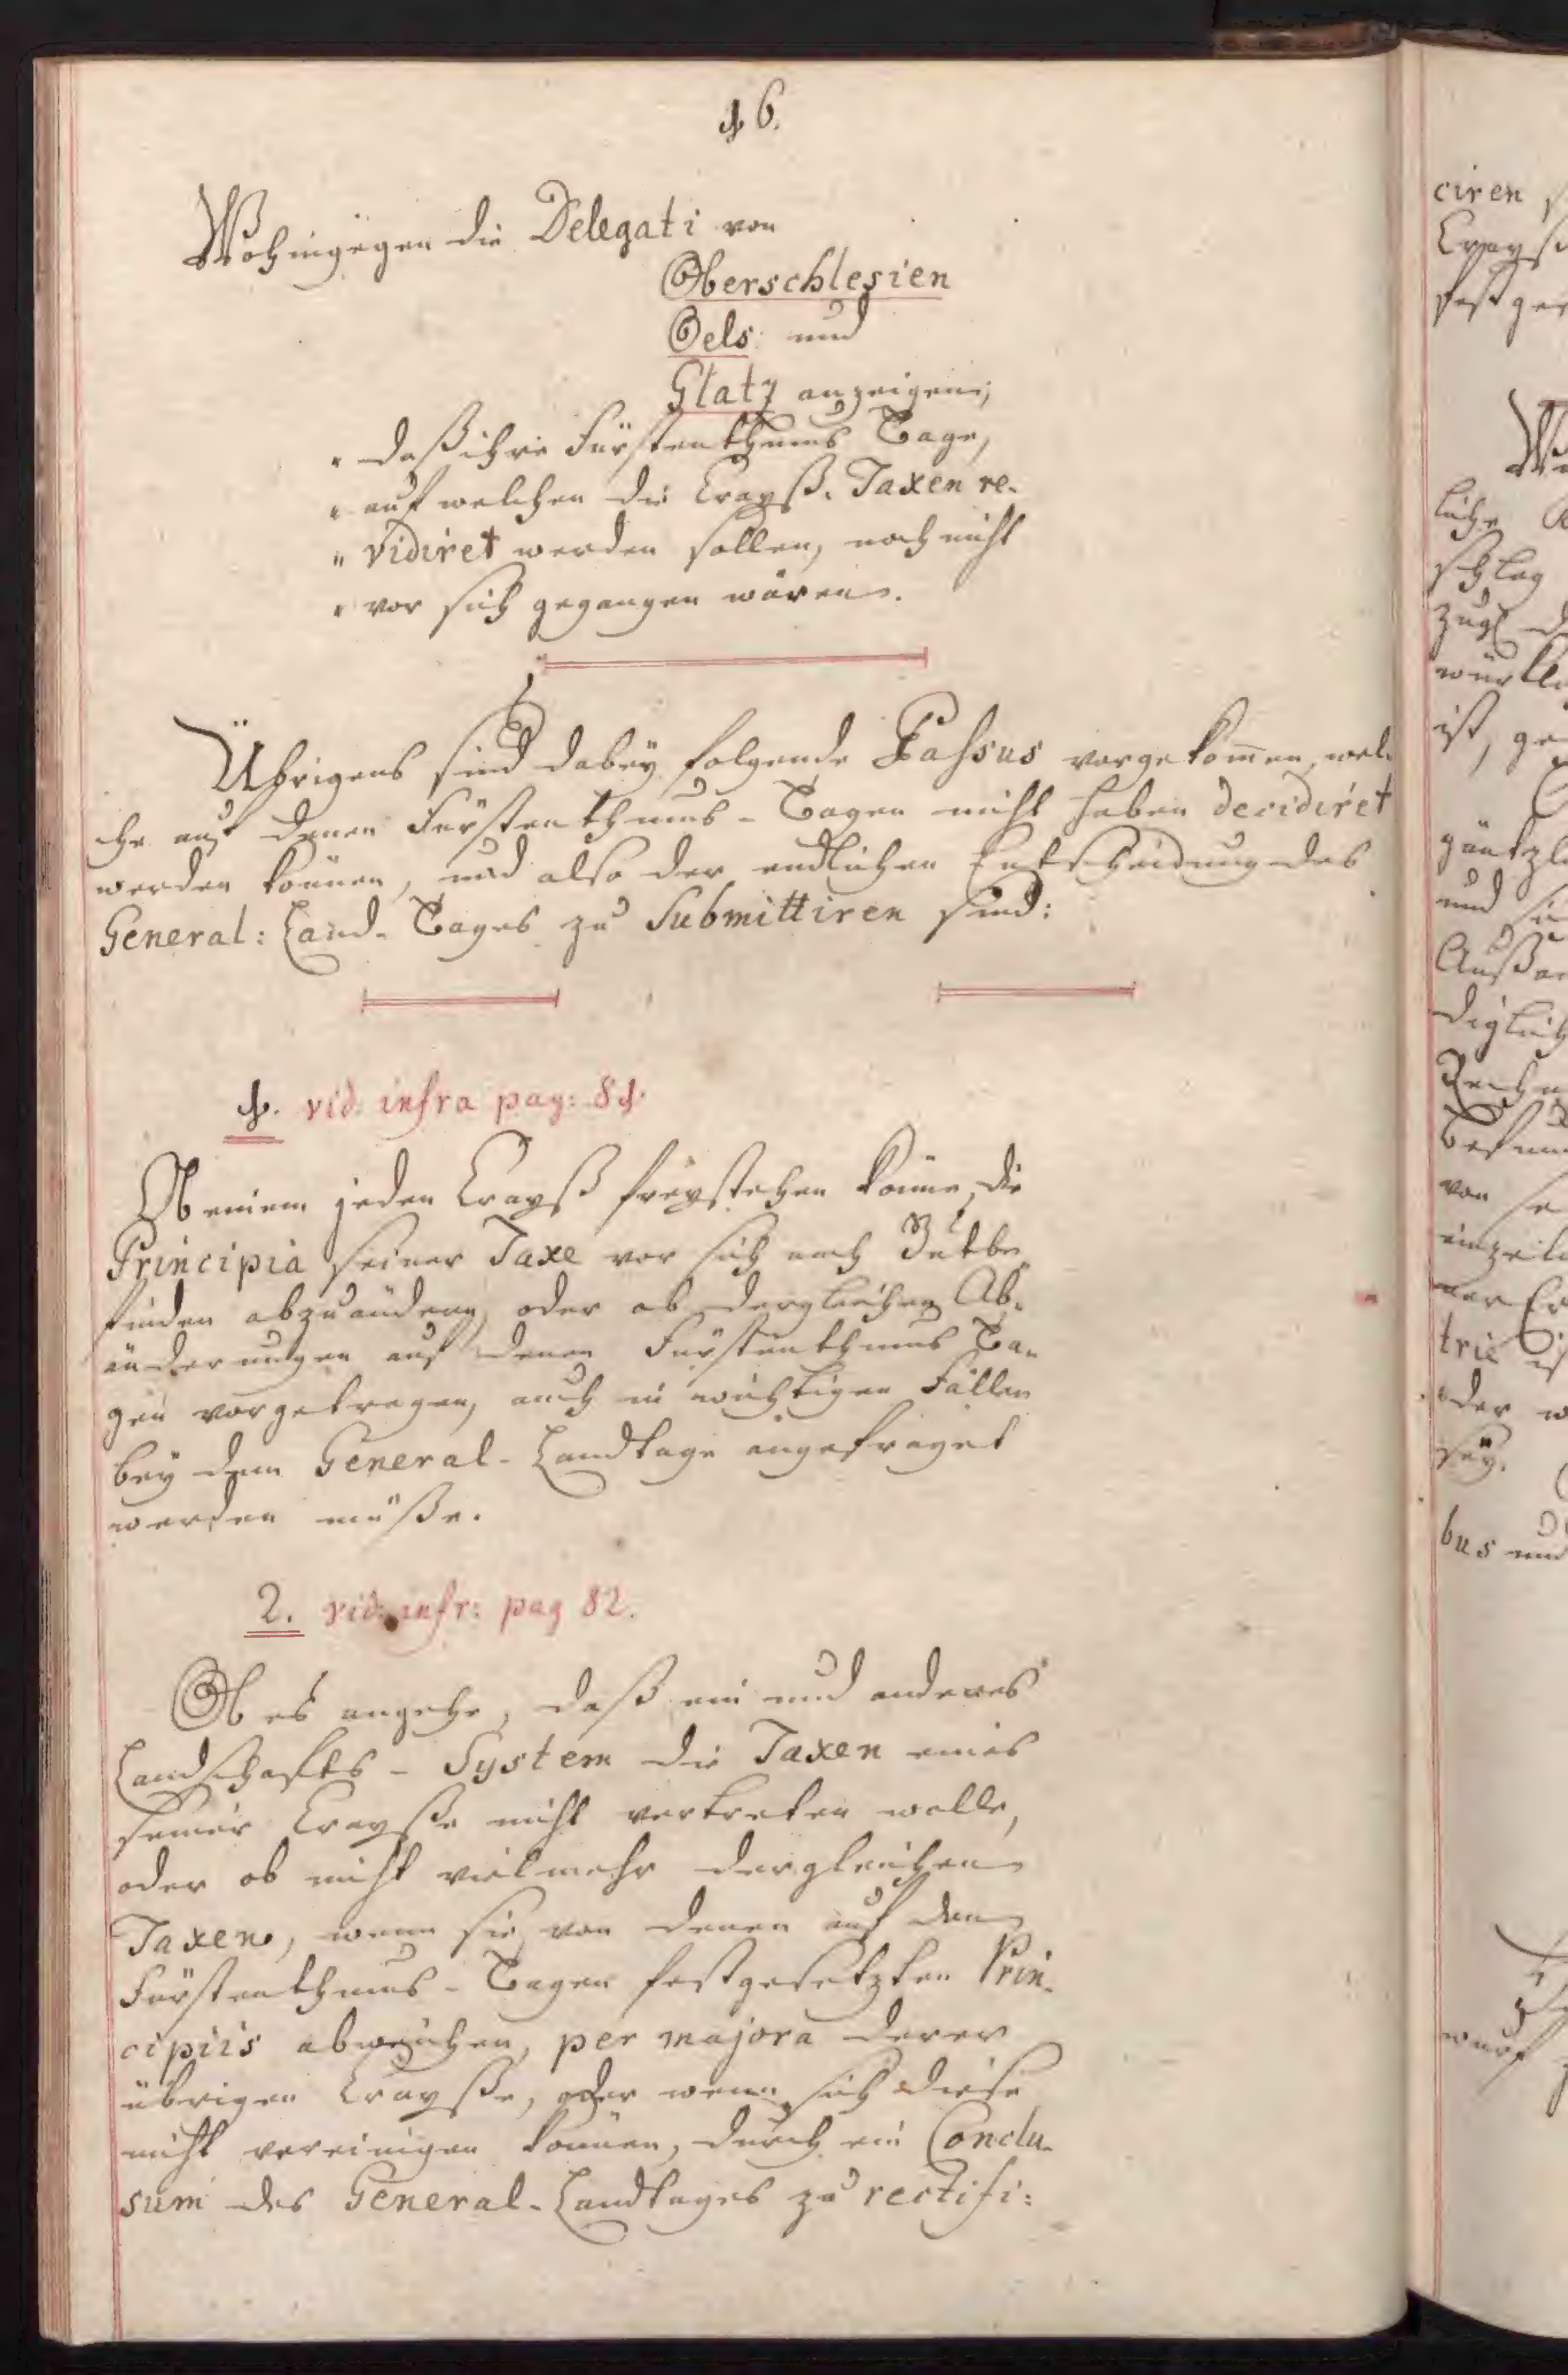 16.
Wohingegen die Delegati von
Oberschlesien
Oels und
Glatz anzeigen;
" daß ihre Fürstenthums Tage,
" auf welchen die Crayß-Taxen re-
" vidiret werden sollen, noch nicht
" vor sich gegangen wären.
Übrigens sind dabey folgende Passus vorgekommen, wel-
che auf denen Fürstenthums-Tagen nicht haben decidiret
werden können, und also der endlichen Entscheidung des
General: Land-Tages zu Submittiren sind:
1. vid: infra pag: 81.
Ob einem jeden Crayß freystehen könne, die
Principia seiner Taxe vor sich nach Gutbe-
finden abzuändern, oder ob dergleichen Ab-
änderungen auf denen Fürstenthums Ta-
gen vorgetragen, auch in wichtigen Fällen
bey dem General-Landtage angefraget
werden müße.
2. vid: infr: pag 82.
Ob es angehe, daß ein und anderes
Landschafts-System die Taxen eines
seiner Crayße nicht vertreten wolle,
oder ob nicht vielmehr dergleichen
Taxen, wenn sie von denen auf den
Fürstenthums-Tagen festgesetzten Prin-
cipiis abweichen, per majora derer
übrigen Crayße, oder wenn sich diese
nicht vereinigen können, durch ein Conclu-
sum des General-Landtages zu rectifi:
ciren
Crayß
festge
liche
schlag
ist, ge
und
von se
oder w
sey.
bus und
wurf